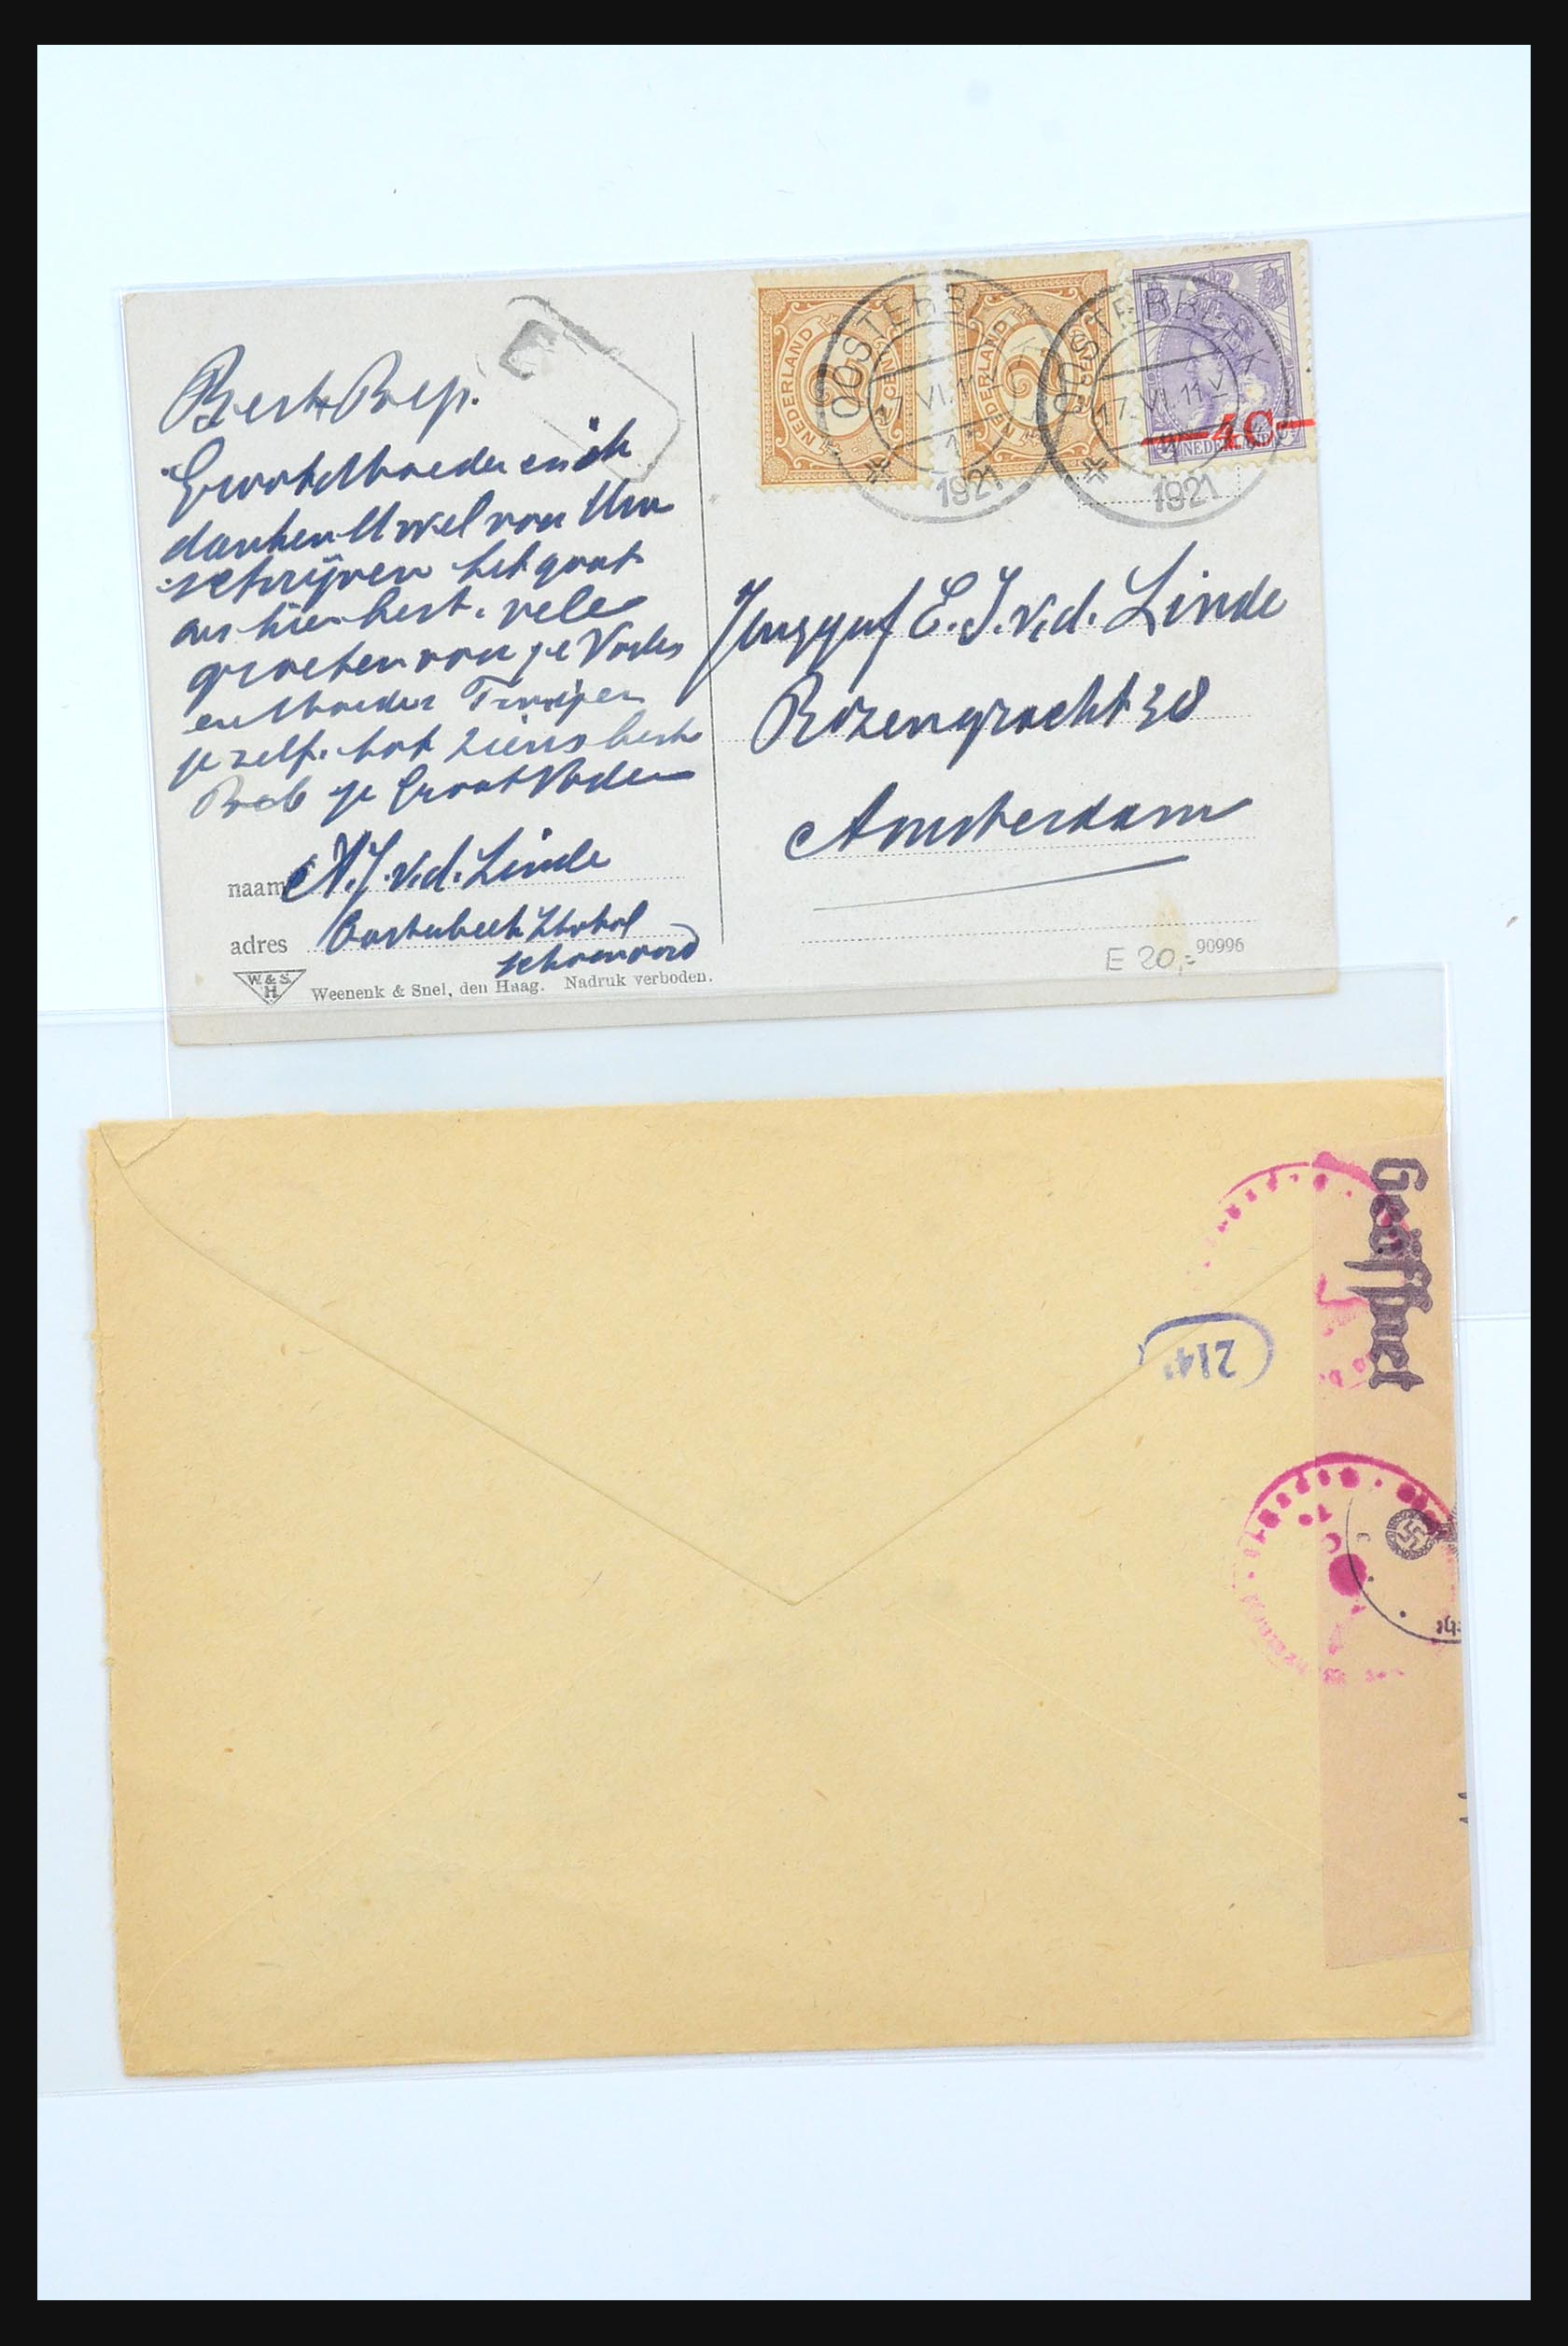 Beste Bep.
Grootmoeder en ik
danken U wel voor Uw
schrijven het gaat
ons hier best. vele
groeten van je Vader
en Moeder
je zelf. tot ziens beste
Bob je GrootVader
naam A.J. v.d. Linde
adres Oosterbeek
schoonoord
W. & S.
H.
Weenenk & Snel, den Haag. Nadruk verboden.
NEDERLAND 2 CENT
NEDERLAND 2 CENT
NEDERLAND
4C
OOSTERBEEK
17.VI.11-V
1921
OOSTERBEEK
17.VI.11-V
1921
E.J. v.d. Linde
Rozengracht 38
Amsterdam
E 20,-
90996
Geöffnet
214